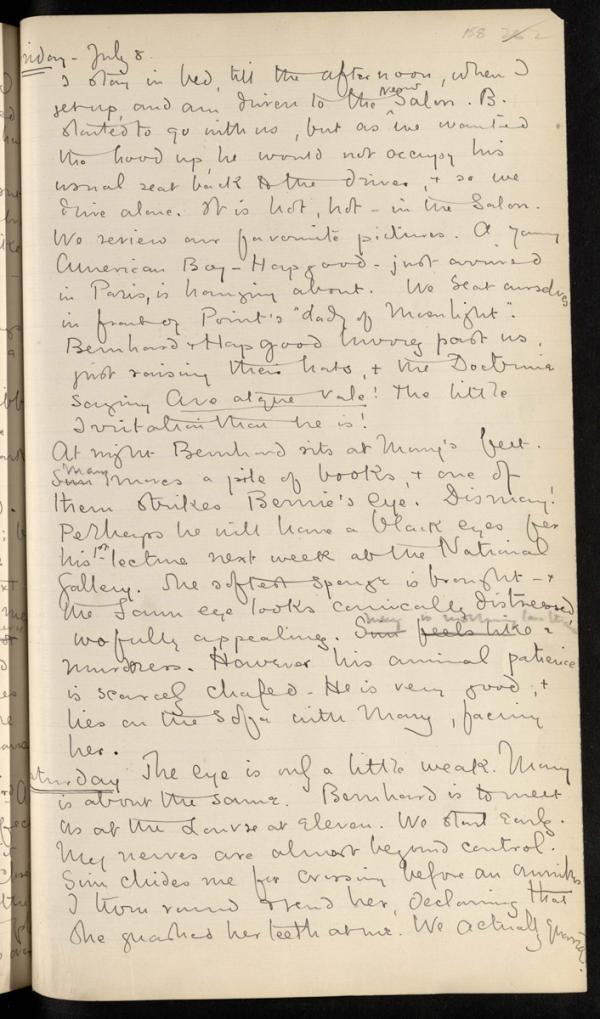 158 262
Friday - July 8.
I stay in bed till the afternoon, when I
get up, and am driven to the new Salon. B.
started to go with us, but as we wanted
the hood up, he would not occupy his
usual seat back to the driver, + so we
drive alone. It is hot, hot - in the Salon.
We review our favourite pictures. A young
American Boy - Hapgood - just arrived
in Paris, is hanging about. We seat ourselves
in front of Point's "lady of Moonlight".
Bernhard + Hapgood hurry past us,
just raising their hats, + the Doctrine
saying Ave atque Vale! The little
Irritation that he is!
At night Bernhard sits at Mary's feet.
Sim Mary moves a pile of books, + one of
them strikes Bernie's eye. Dismay!
Perhaps he will have a black eye for
his 1st lecture next week at the National
Gallery. The softest sponge is brought - +
the Faun eye looks comically distressed,
wofully appealing. Sim feels like a
murdress. However his animal patience
is scarcely chafed - He is very good, +
lies on the sofa with Mary, facing
her.
Saturday The eye is only a little weak. Mary
is about the same. Bernhard is to meet
us at the Louvre at Eleven. We start Early.
My nerves are almost beyond control.
Sim chides me for crossing before an omnibus
I turn round + rend her, declaring that
she gnashed her teeth at me. We actually quarrel.